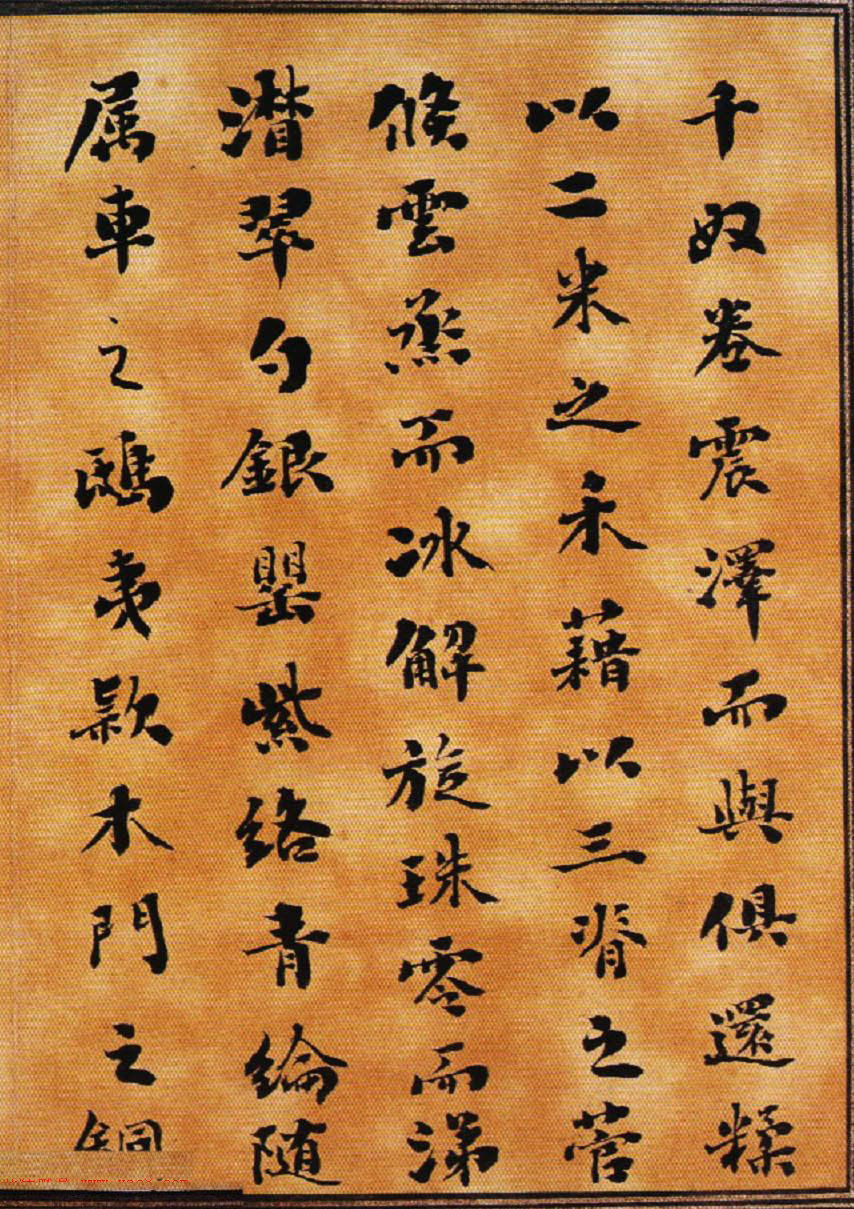 千奴卷震澤而與俱還糅
以二米之禾藉以三脊之菅
倏雲烝而冰解旋珠零而涕
潸翠勺銀罌紫絡青綸隨
属車之鴟夷款木門之銅